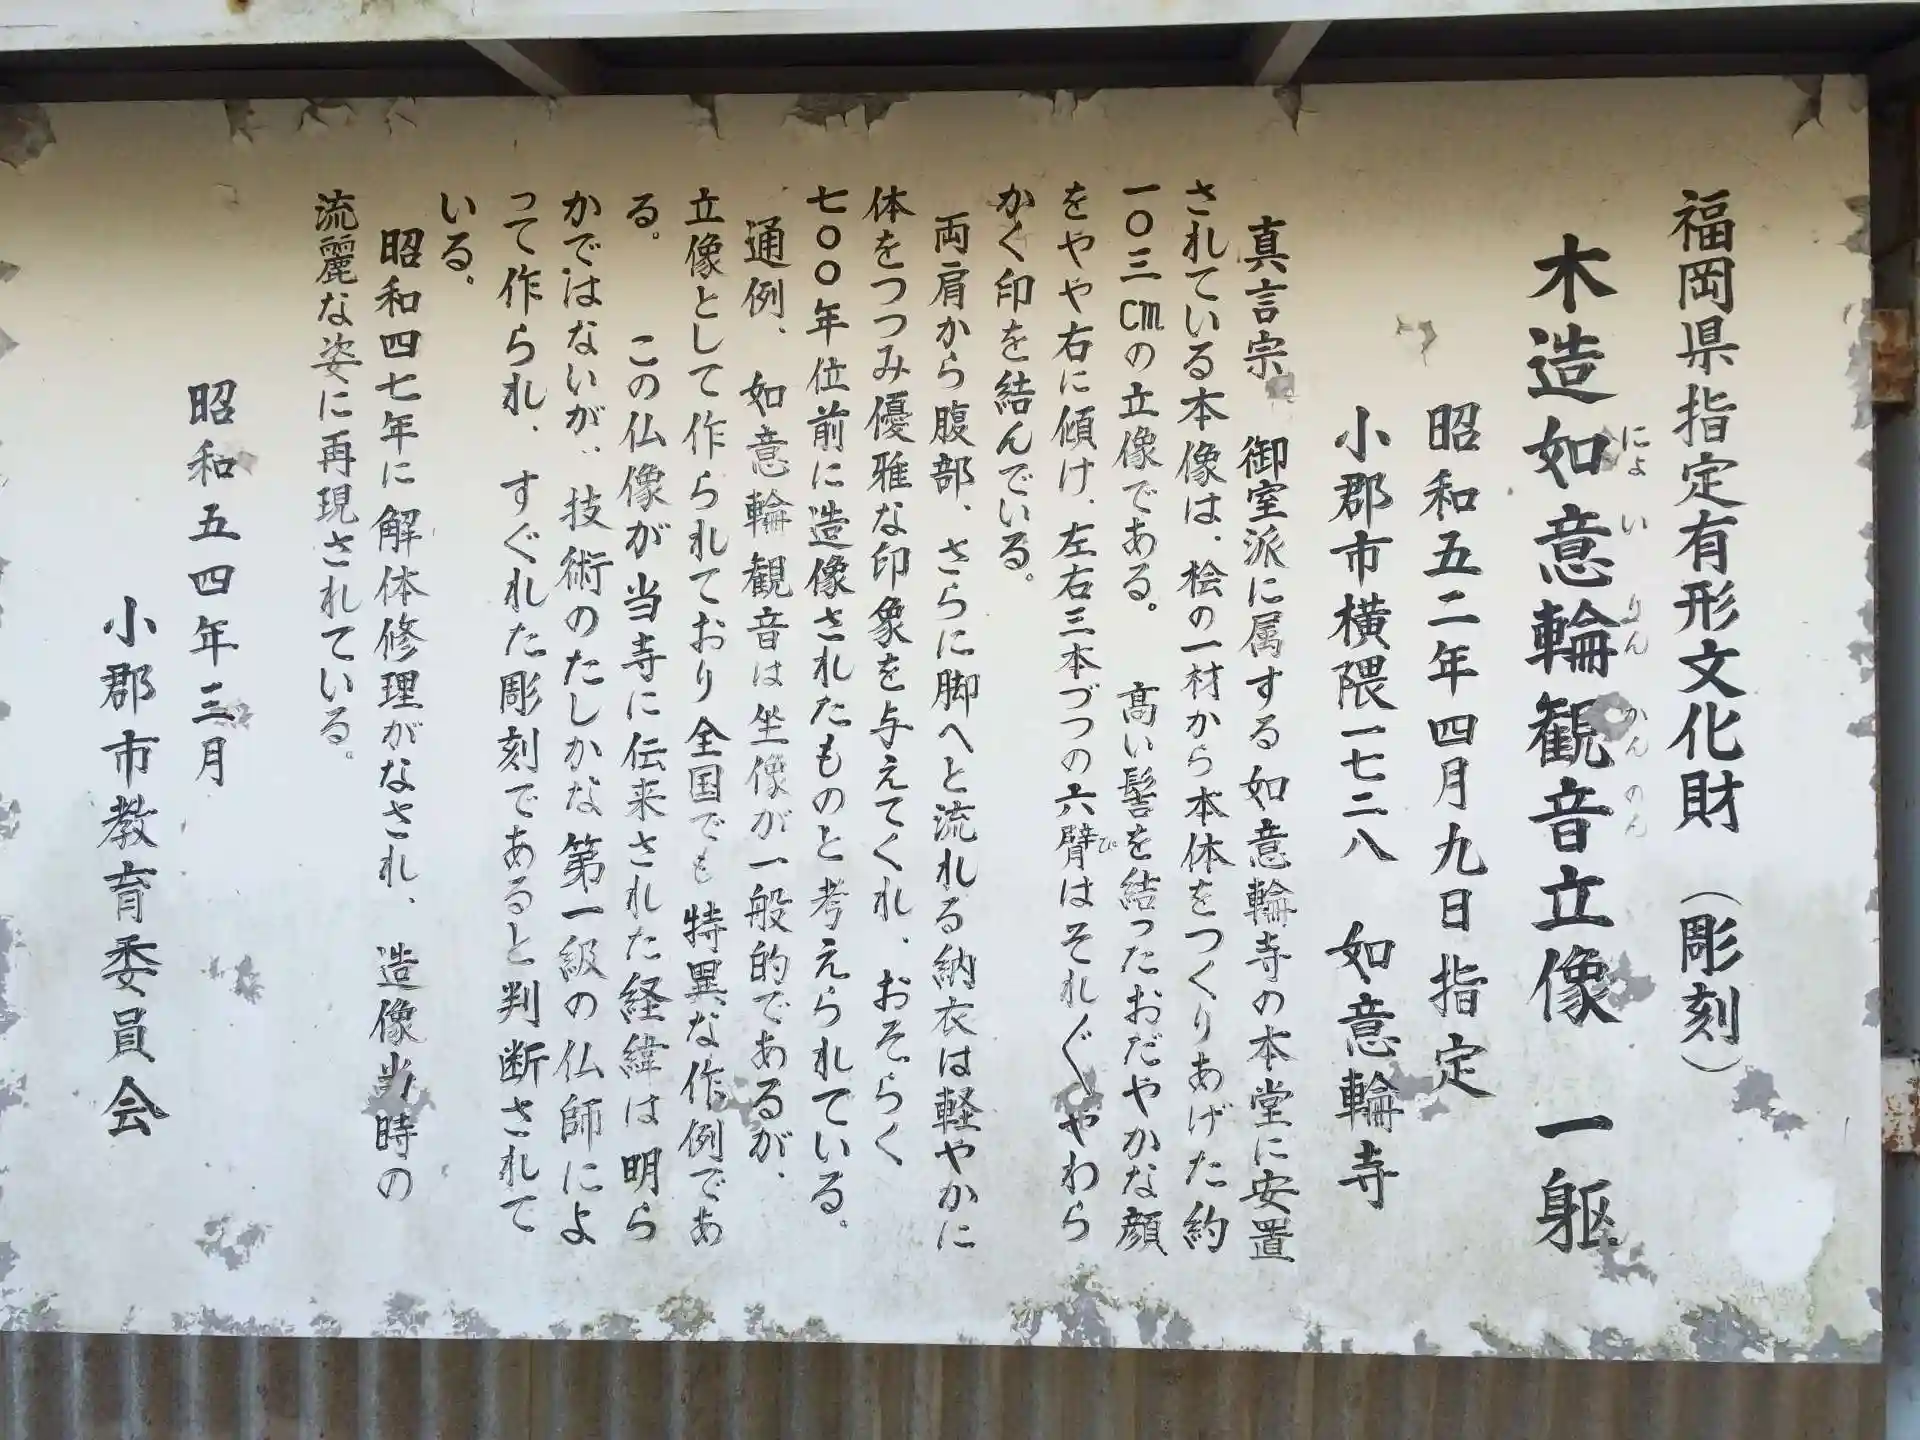 福岡県指定有形文化財（彫刻）
木造如意輪観音立像　一躯
にょ　い　りん　かんのん
昭和五二年四月九日指定
小郡市横隈一七二八　如意輪寺
真言宗　御室派に属する如意輪寺の本堂に安置
されている本像は、桧の一材から本体をつくりあげた約
一〇三㎝の立像である。　高い髻を結ったおだやかな顔
をやや右に傾け、左右三本づつの六臂はそれぐやわら
び
かく印を結んでいる。
両肩から腹部、さらに脚へと流れる納衣は軽やかに
体をつつみ優雅な印象を与えてくれ、おそらく
七〇〇年位前に造像されたものと考えられている。
通例、　如意輪観音は坐像が一般的であるが、
立像として作られており全国でも特異な作例であ
る。　この仏像が当寺に伝来された経緯は明ら
かではないが、技術のたしかな第一級の仏師によ
って作られ、すぐれた彫刻であると判断されて
いる。
昭和四七年に解体修理がなされ、　造像当時の
流麗な姿に再現されている。
昭和五四年三月
小郡市教育委員会